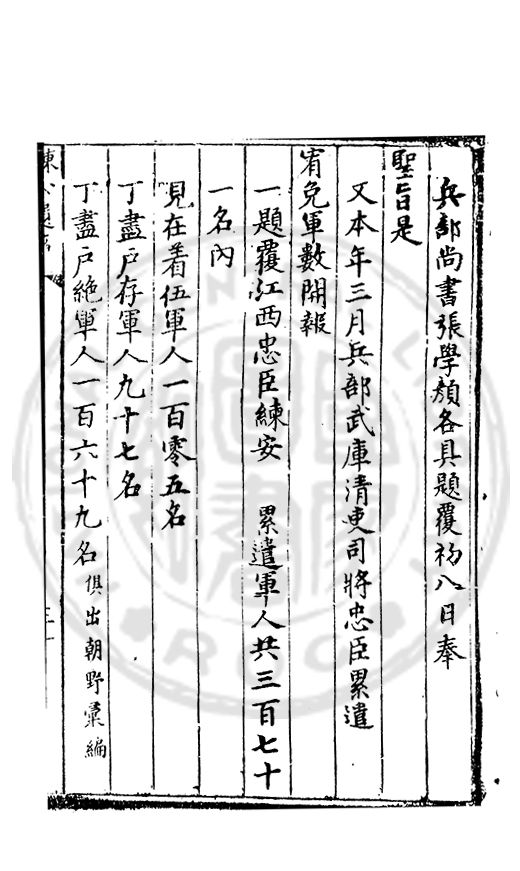 兵部尚書張學顏各具題覆初八日奉
聖旨是
又本年三月兵部武庫清吏司將忠臣累遣
宥免軍數開報
一題覆江西忠臣練安 累遣軍人共三百七十
一名內
見在着伍軍人一百零五名
丁盡戶存軍人九十七名
丁盡戶絕軍人一百六十九名俱出朝野彙編